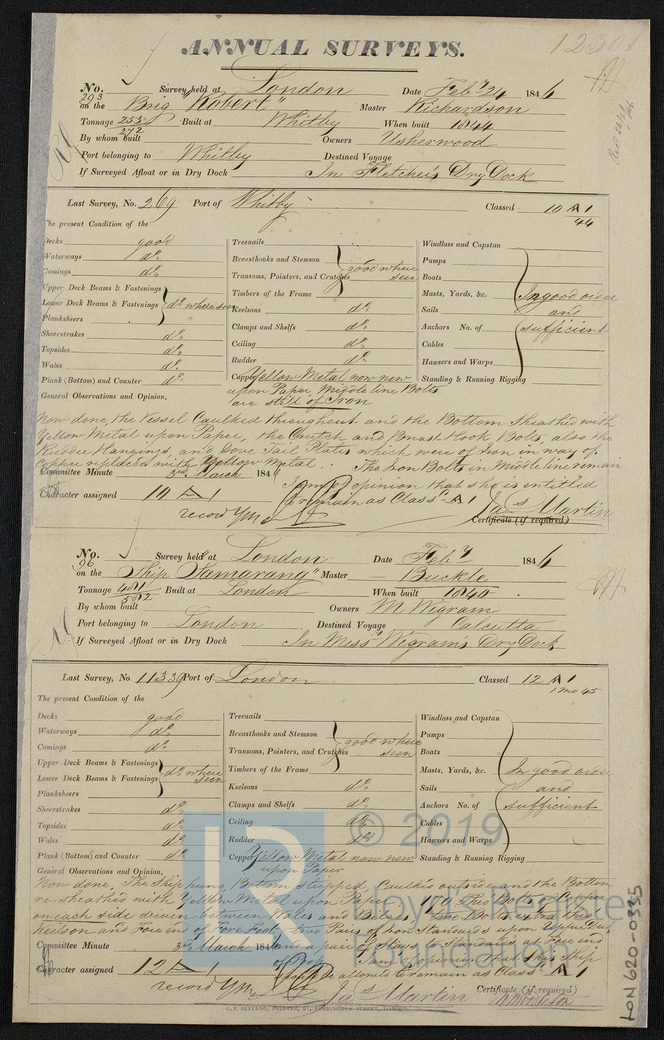 ANNUAL SURVEYS.
No. 293 Survey held at London Date Feb 24 1846
on the Brig "Robert" Master Richardson
Tonnage 253/272 Built at Whitby When built 1844
By whom built Owners Usherwood
Port belonging to Whitby Destined Voyage
If Surveyed Afloat or in Dry Dock In Fletcher's Dry Dock
Last Survey, No. 269 Port of Whitby Classed 10 A 1
44
The present Condition of the
Decks good
Waterways do
Comings do
Upper Deck Beams & Fastenings
Lower Deck Beams & Fastenings do where seen
Plankshears
Sheerstrakes do
Topsides do
Wales do
Plank (Bottom) and Counter do
Treenails
Breasthooks and Stemson
Transoms, Pointers, and Crutches good where seen
Timbers of the Frame
Keelsons do
Clamps and Shelfs do
Ceiling do
Rudder do
Copper Yellow Metal now new
upon Paper Middle line Bolts
are still of Iron
Windlass and Capstan
Pumps
Boats
Masts, Yards, &c. In good order
Sails and
Anchors No. of sufficient
Cables
Hawsers and Warps
Standing & Running Rigging
General Observations and Opinion,
Now done, the Vessel Caulked throughout and the Bottom Sheathed with
Yellow Metal upon Paper, the Crutch and Breast Hook Bolts, also the
Rudder Hangings, and Dove Tail Plates which were of Iron in way of
Copper replaced with Yellow Metal. The Iron Bolts in Middle line remain
Committee Minute 3rd March 1846
I am of opinion that she is entitled
Character assigned 10 A 1 to remain as Classd A 1
record YM Jas Martin
Certificate (if required)
No. 96 Survey held at London Date Feby 1846
on the Ship "Samarang" Master Buckle
Tonnage Built at London When built 1840
By whom built Owners M Wigram
Port belonging to London Destined Voyage Calcutta
If Surveyed Afloat or in Dry Dock In Messrs Wigram's Dry Dock
Last Survey, No. 11339 Port of London Classed 12 A 1
1 mo 45
The present Condition of the
Decks good
Waterways do
Comings do
Upper Deck Beams & Fastenings
Lower Deck Beams & Fastenings do where seen
Plankshears
Sheerstrakes do
Topsides do
Wales do
Plank (Bottom) and Counter do
Treenails
Breasthooks and Stemson
Transoms, Pointers, and Crutches good where seen
Timbers of the Frame
Keelsons do
Clamps and Shelfs do
Ceiling do
Rudder do
Copper Yellow Metal now new
upon Paper
Windlass and Capstan
Pumps
Boats
Masts, Yards, &c. In good order
Sails and
Anchors No. of sufficient
Cables
Hawsers and Warps
Standing & Running Rigging
General Observations and Opinion,
Now done, The Ship hung, Bottom stripped, Caulked outside and the Bottom
re-sheathed with Yellow Metal upon Paper
on each side driven between Wales and
Keelson and Fore end of Fore Foot, two Pair of Iron Standards upon Upper Deck
Committee Minute 3rd March 1846 and a pair of
I am of opinion that this Ship
Character assigned 12 A 1 to remain as Classd A 1
record YM Jas Martin
Certificate (if required)
G. F. SEYFANG, PRINTER, 57, FARRINGDON STREET, LONDON.
LON620-0335
LR
© 2019
Lloyd's Register
Foundation